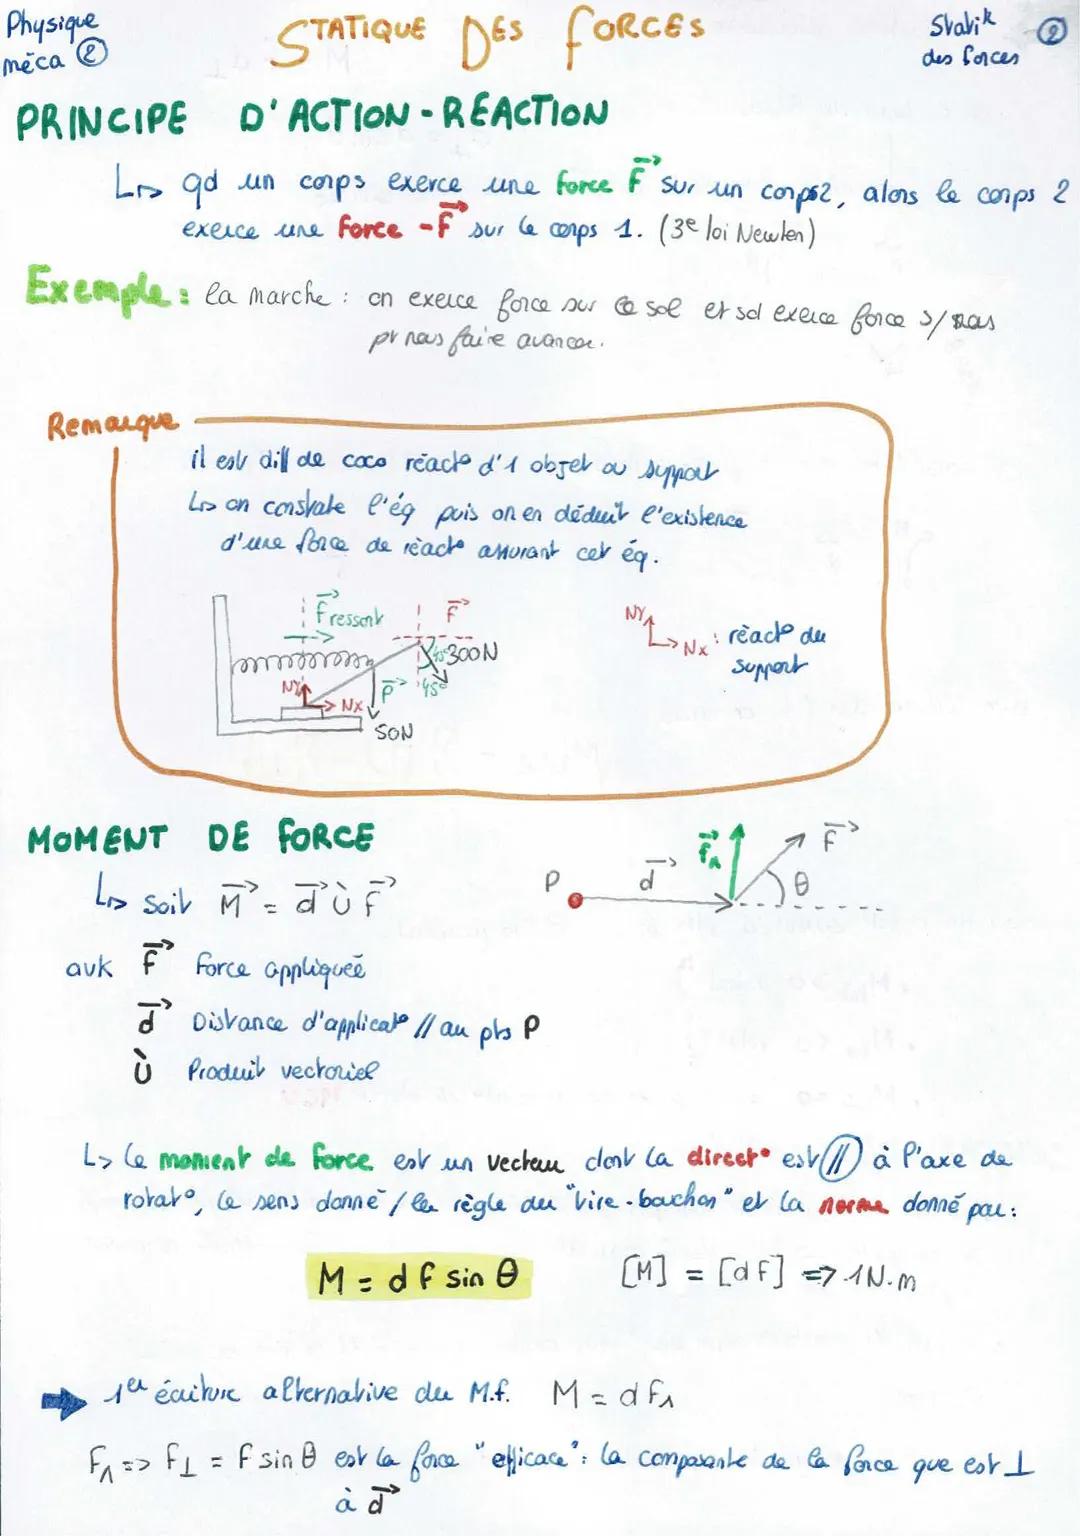 Physique
méca ②
STATIQUE DES FORCES
Statik ②
des forces
PRINCIPE D'ACTION-REACTION
↳ qd un corps exerce une force F⃗ sur un corps2, alors le corps 2
exerce une force -F⃗ sur le corps 1. (3e loi Newton)
Exemple : la marche : on exerce force sur le sol et sol exerce force s/ nous
pr nous faire avancer.
Remarque
il est diff de caca réact° d'1 objet ou support
↳ on constate l'éq puis on en déduit l'existence
d'une force de réact° assurant cet éq.
F⃗ressort
F⃗
45° 300N
NY
Nx
P⃗
45°
50N
NY
Nx : réact° du
support
MOMENT DE FORCE
↳ soit M⃗ = d⃗ Ù F⃗
P d⃗ F⃗∧ F⃗ θ
avk F⃗ Force appliqueé
d⃗ Distance d'applicat° // au pts P
Ù Produit vectoriel
↳ le moment de force est un vecteur dont la direct° est // à l'axe de
rotat°, le sens donné / la règle du "tire-bouchon" et la norme donné par :
M = d F sin θ
[M] = [dF] => 1N.m
➡ 1er écriture alternative du M.f. M = d F∧
F∧ => F⊥ = F sin θ est la force "efficace" : la composante de la force que est ⊥
à d⃗